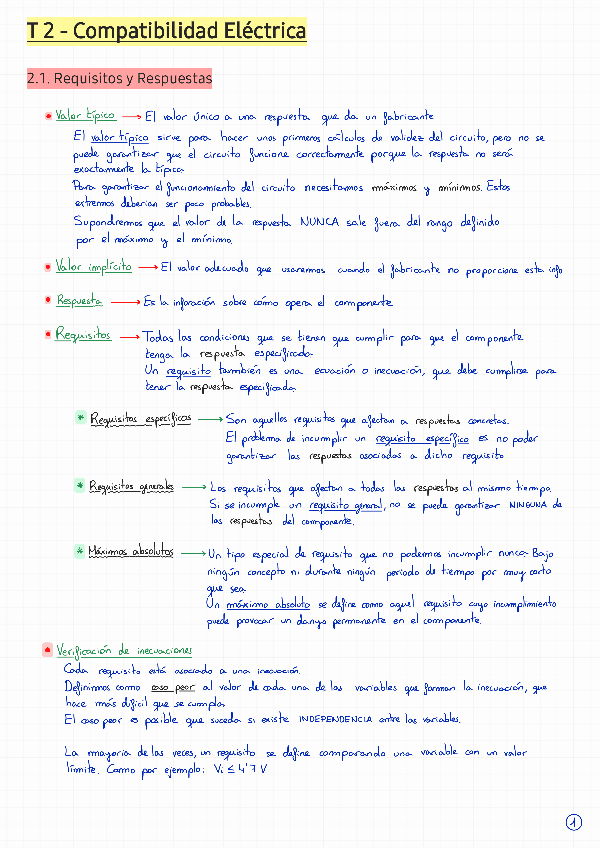 T 2 - Compatibilidad Eléctrica
2.1. Requisitos y Respuestas
Valor típico → El valor único a una respuesta que da un fabricante
El valor típico sirve para hacer unos primeros cálculos de validez del circuito, pero no se
puede garantizar que el circuito funcione correctamente porque la respuesta no será
exactamente la típica.
Para garantizar el funcionamiento del circuito necesitamos máximos y mínimos. Estos
extremos deberían ser poco probables.
Supondremos que el valor de la respuesta NUNCA sale fuera del rango definido
por el máximo y el mínimo.
Valor implícito → El valor adecuado que usaremos cuando el fabricante no proporcione esta info
Respuesta → Es la inforación sobre cómo opera el componente
Requisitos → Todas las condiciones que se tienen que cumplir para que el componente
tenga la respuesta especificada.
Un requisito también es una ecuación o inecuación, que debe cumplirse para
tener la respuesta especificada.
* Requisitos específicos → Son aquellos requisitos que afectan a respuestas concretas.
El problema de incumplir un requisito específico es no poder
garantizar las respuestas asociadas a dicho requisito
* Requisitos generales → Los requisitos que afectan a todas las respuestas al mismo tiempo.
Si se incumple un requisito general, no se puede garantizar NINGUNA de
las respuestas del componente.
* Máximos absolutos → Un tipo especial de requisito que no podemos incumplir nunca. Bajo
ningún concepto ni durante ningún periodo de tiempo por muy corto
que sea.
Un máximo absoluto se define como aquel requisito cuyo incumplimiento
puede provocar un danyo permanente en el componente.
Verificación de inecuaciones
Cada requisito está asociado a una inecuación.
Definimos como caso peor al valor de cada una de las variables que forman la inecuación, que
hace más difícil que se cumpla.
El caso peor es posible que suceda si existe INDEPENDENCIA entre las variables.
La mayoría de las veces, un requisito se define comparando una variable con un valor
límite. Como por ejemplo: Vi ≤ 4'7 V
1